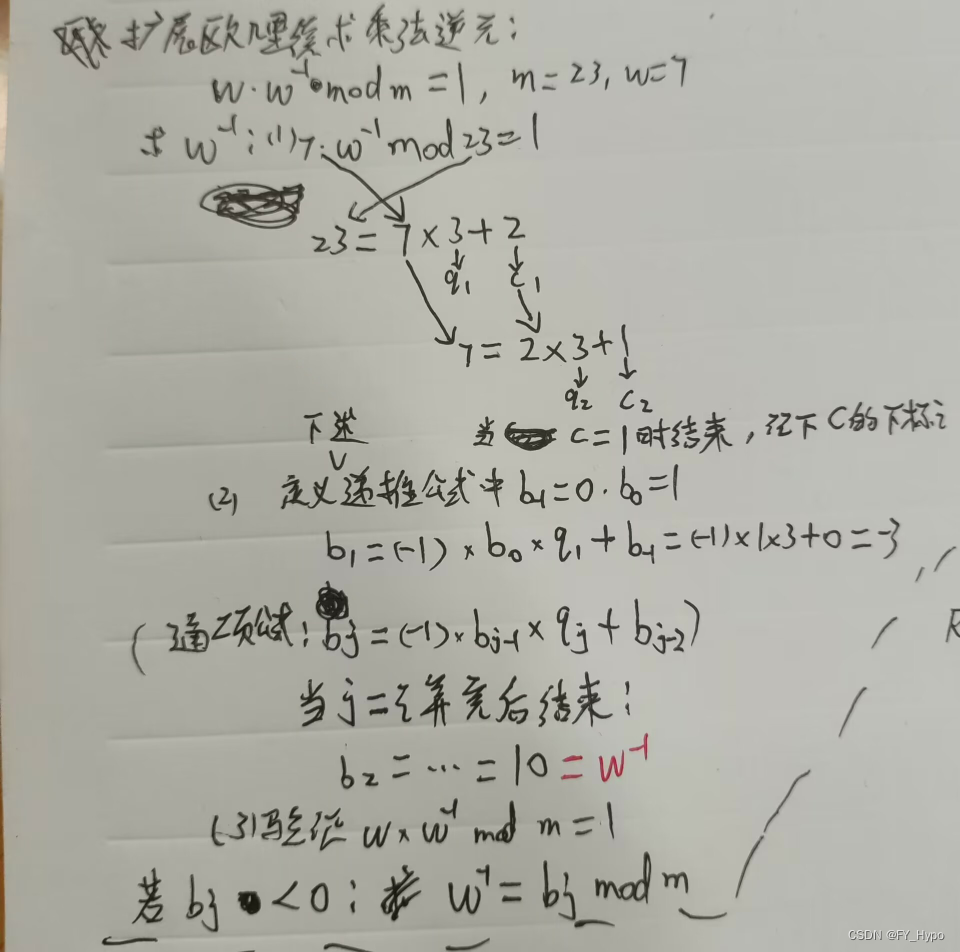 扩展欧几里得求乘法逆元:
w·w⁻¹ mod m = 1, m = 23, w = 7
求 w⁻¹: (1) 7·w⁻¹ mod 23 = 1
23 = 7 × 3 + 2
q₁ c₁
7 = 2 × 3 + 1
q₂ c₂
当 c = 1时结束, 记下C的下标i
下述
(2) 定义递推公式中 b₋₁ = 0. b₀ = 1
b₁ = (-1) × b₀ × q₁ + b₋₁ = (-1) × 1 × 3 + 0 = -3
(通项公式: bj = (-1) × bj-1 × qj + bj-2)
当 j = i 算完后结束:
b₂ = ... = 10 = w⁻¹
(3) 验证 w × w⁻¹ mod m = 1
若 bj < 0: w⁻¹ = bj mod m
CSDN @FY_Hypo